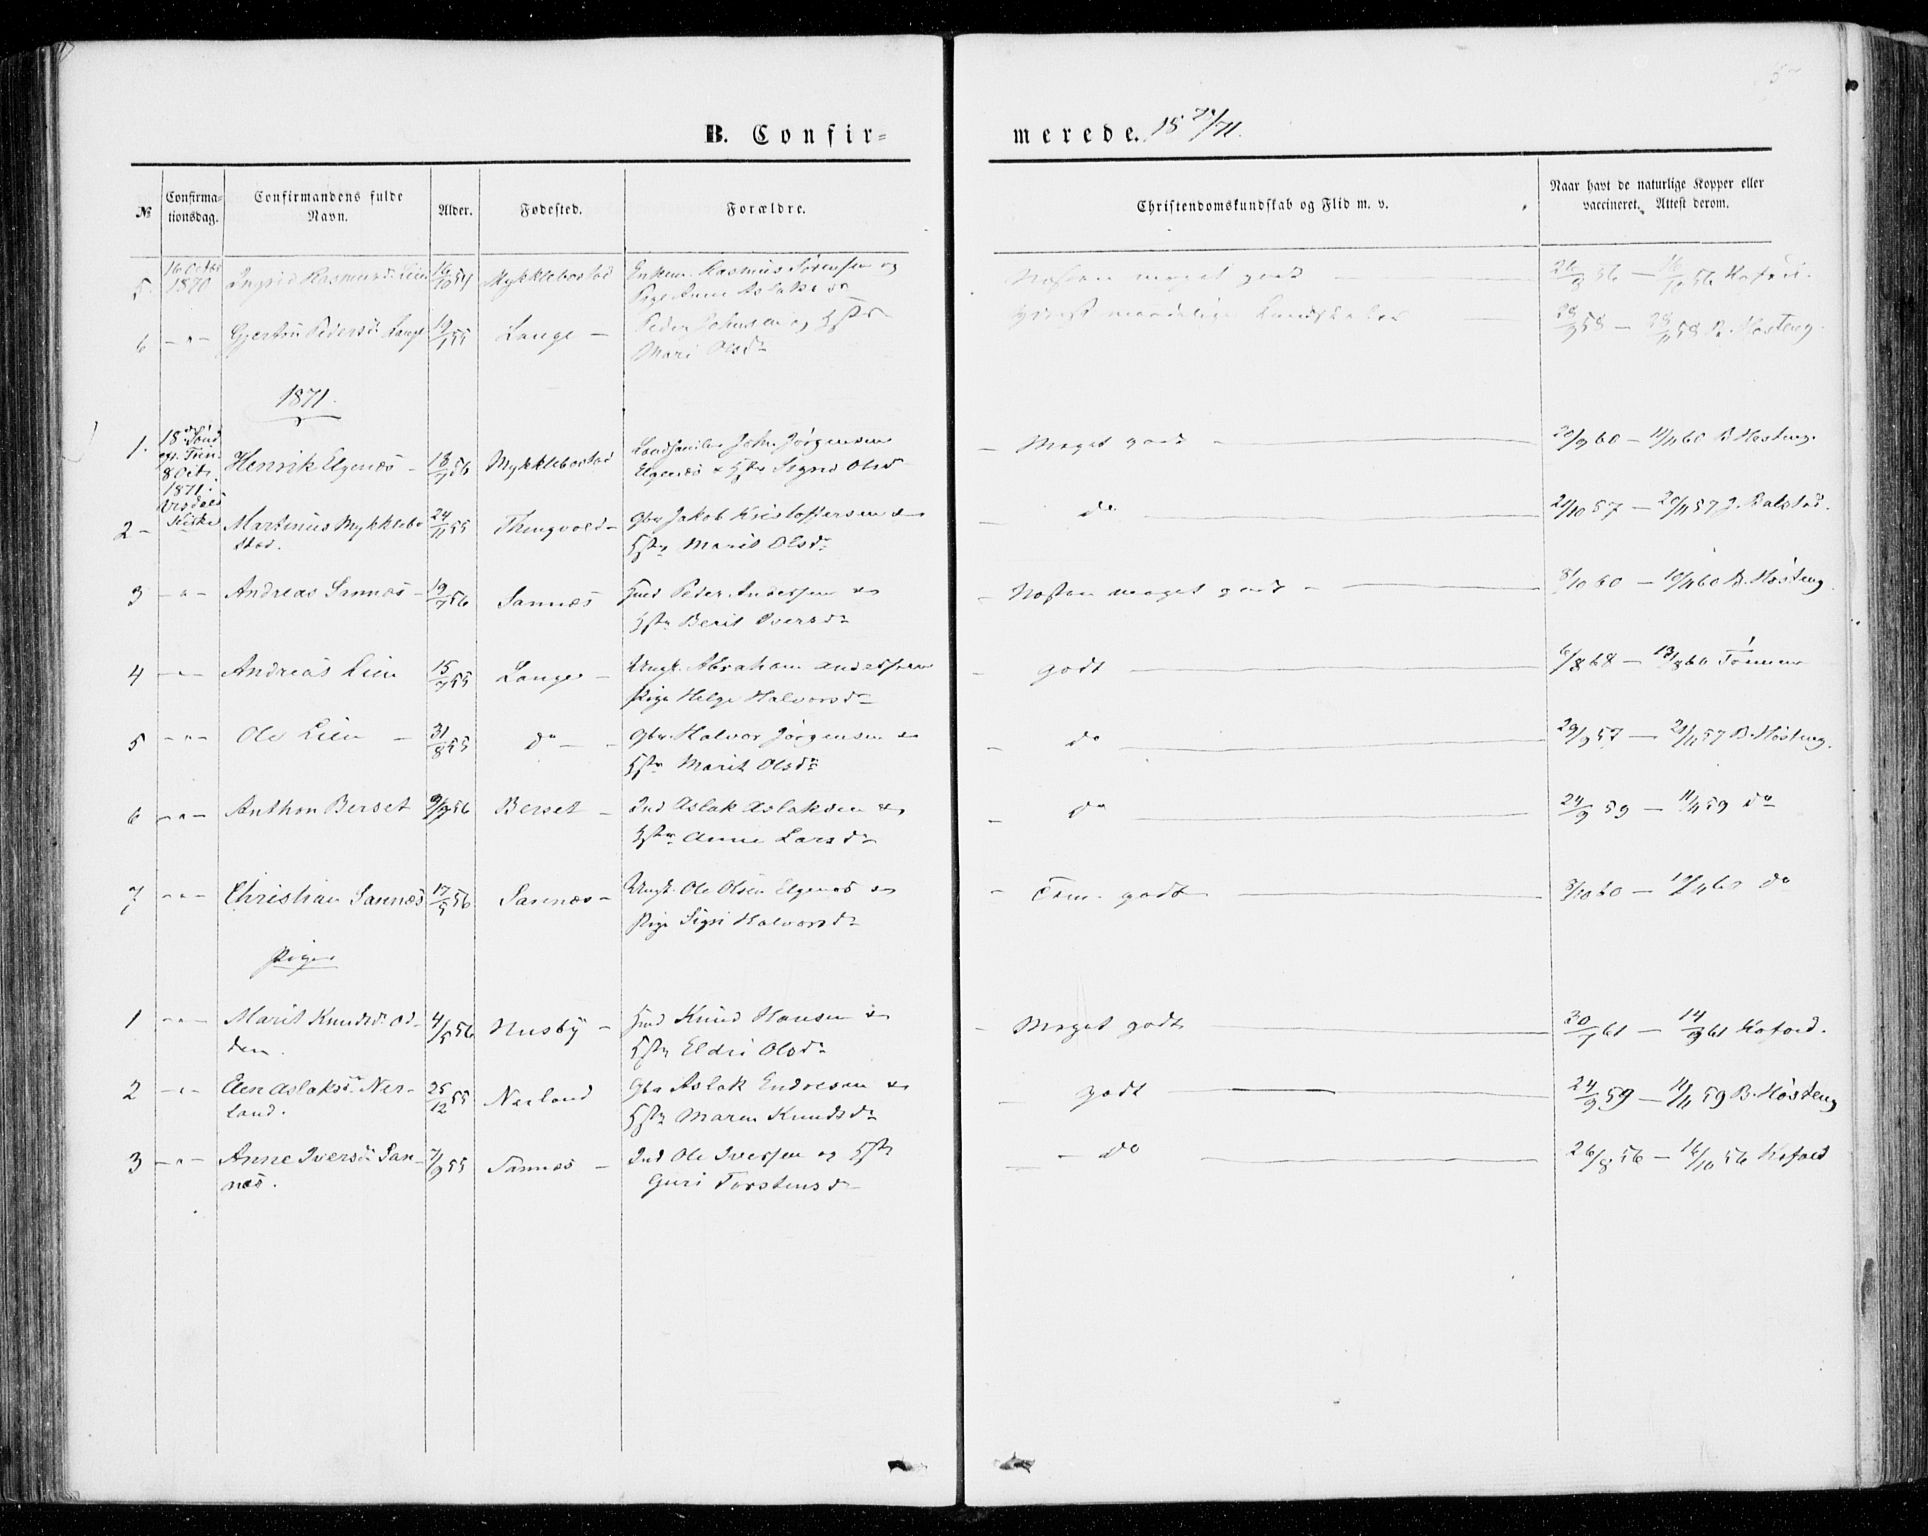 B. Confir=
merede. 18 70/71.
№
Confirma=
tionsdag.
Confirmandens fulde
Navn.
Alder.
Fødested.
Forældre.
Christendomskundskab og Flid m. v.
Naar havt de naturlige Kopper eller
vaccineret. Attest derom.
5. 16 Octbr 1870 Ingrid Rasmusdr Lien 16/10 54 Mykklebostad Enkem. Rasmus Sørensen og
Pige Anne Aslaksdr
Næsten meget godt 26/8 56 — 16/10 56 Kofoed.
6 - " - Gjertru Pedersdr Lange 19/1 55 Lange — Peder Johnsen og Hstr
Mari Olsdr
Kundskaber 58 — 58 B. Høsteng.
1871.
1. 18de Sønd
eft. Trin.
8 Octr.
1871.
Henrik Elgenæs - 18/7 56 Mykklebostad Landhandler John Jørgensen
Elgenæs & Hstr Sigrid Olsd
- Meget godt 60 — 11/11 60 B. Høsteng.
2 - Kirke Martinus Mykklebo
stad. 24/11 55 Thingvold - Gbr Jakob Kristoffersen &
Hstr Marit Olsdr
- do 21/10 57 — 57 J. Balstad.
3 - " - Andreas Sannæs - 19/7 56 Sannæs Hmd Peder Andersen &
Hstr Berit Iversdr
- Næsten meget godt - 8/10 60 — 10/11 60 B. Høsteng
4 - " - Andreas Lien 15/7 55 Lange - Ungk. Abraham Anderssen
Pige Helge Halvorsdr
- godt 6/8 68 — 60
5 - " - Ole Lien - 31/8 55 do - Gbr Halvor Jørgensen &
Hstr Marit Olsdr
- do 29/9 57 — 21/11 57 B. Høsteng.
6 - " - Anthon Berset 9/9 56 Berset - Ind Aslak Aslaksen &
Hstr Anne Larsdr
- do 24/9 59 — 11/11 59 do
7 - " - Christian Sannæs 17/5 56 Sannæs - Ungk. Ole Olsen Elgenæs &
Pige Sigri Halvorsdr
- Tem. godt 8/10 60 — 10/11 60 do
Piger
1 - " - Marit Knudsdr Od-
den. 4/5 56 Husby - Hmd Knud Hansen &
Hstr Eldri Olsdr
- Meget godt 30/7 61 — 14/9 61 Kofoed.
2 - " - Elen Aslaksdr Ner-
land. 25/12 55 Nerland Gbr Aslak Endresen &
Hstr Maren Knudsdr
- godt 24/9 59 — 11/11 59 B. Høsteng
3 - " - Anne Iversdr San-
næs. 7/9 55 Sannæs - Ind Ole Iverssen og Hstr
Guri Torstensdr
- do 26/8 56 — 16/10 56 Kofoed